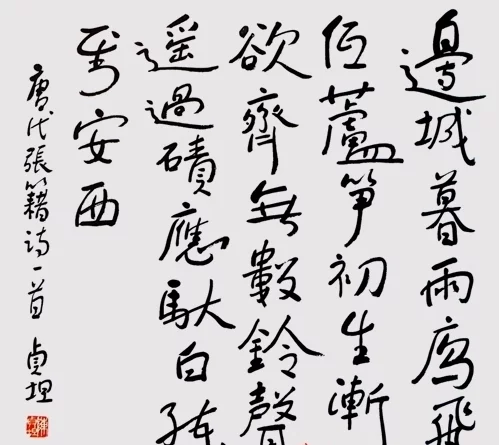 邊城暮雨鴈飛
低蘆筍初生漸
欲齊無數鈴聲
遥過磧應馱白練
到安西
唐代張籍诗一首